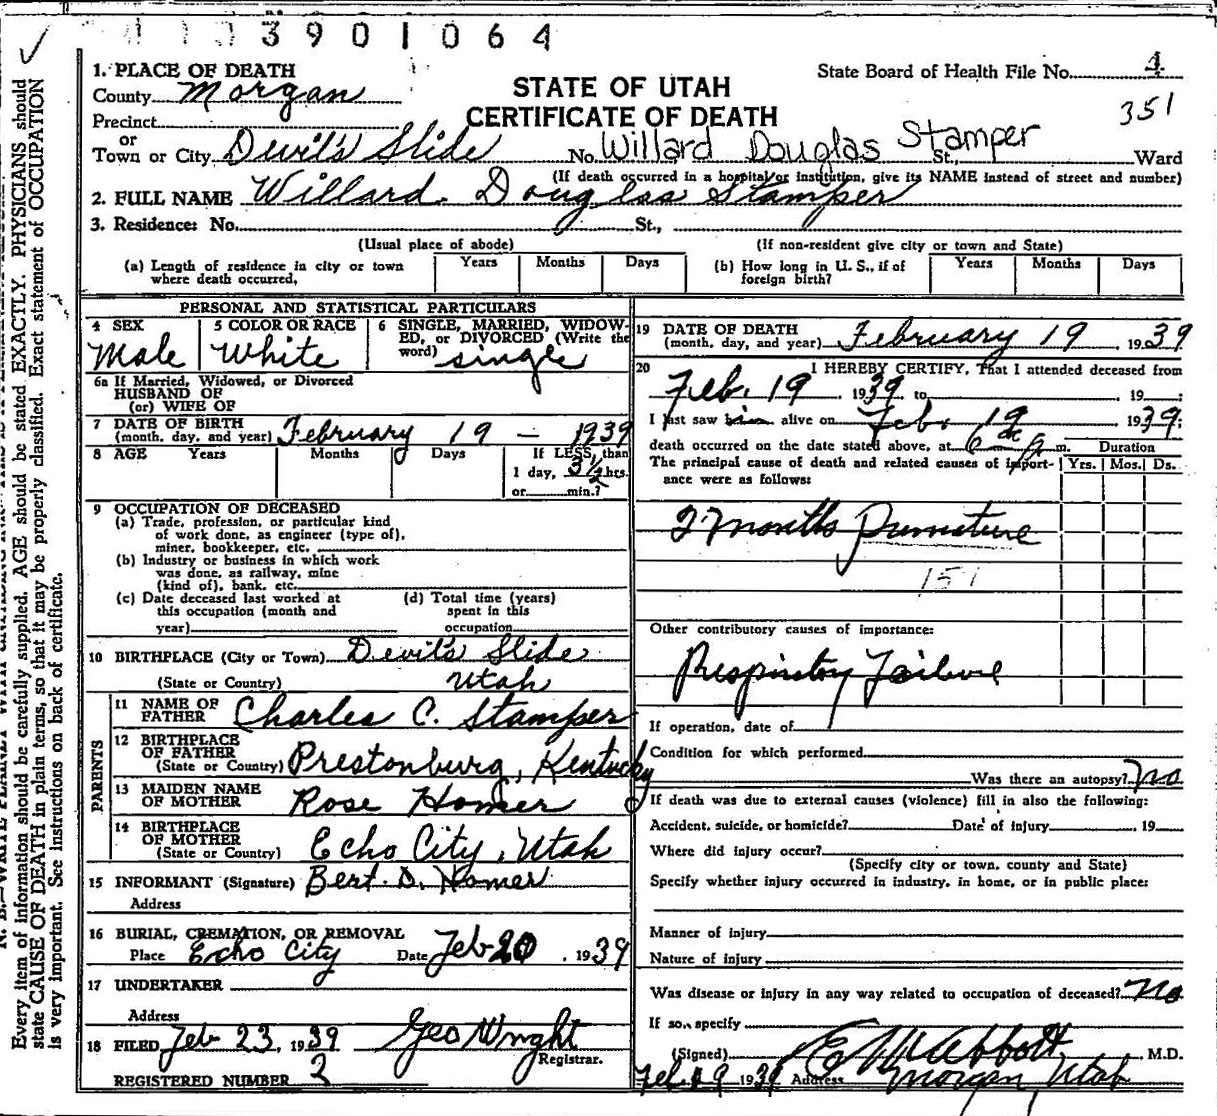 3901064
1. PLACE OF DEATH
County Morgan
STATE OF UTAH
CERTIFICATE OF DEATH
State Board of Health File No. 4
351
Precinct
or
Town or City Devil's Slide No. Willard Douglas Stamper St., Ward
(If death occurred in a hospital or institution, give its NAME instead of street and number)
2. FULL NAME Willard Douglas Stamper
3. Residence: No. St.,
(Usual place of abode) (If non-resident give city or town and State)
(a) Length of residence in city or town where death occurred, Years Months Days
(b) How long in U. S., if of foreign birth? Years Months Days
PERSONAL AND STATISTICAL PARTICULARS
4 SEX Male
5 COLOR OR RACE White
6 SINGLE, MARRIED, WIDOWED, or DIVORCED (Write the word) single
6a If Married, Widowed, or Divorced
HUSBAND OF
(or) WIFE OF
7 DATE OF BIRTH
(month, day, and year) February 19 - 1939
8 AGE Years Months Days If LESS than
1 day, 3 1/2 hrs.
or min.?
9 OCCUPATION OF DECEASED
(a) Trade, profession, or particular kind
of work done, as engineer (type of),
miner, bookkeeper, etc.
(b) Industry or business in which work
was done, as railway, mine
(kind of), bank, etc.
(c) Date deceased last worked at
this occupation (month and
year)
(d) Total time (years)
spent in this
occupation
10 BIRTHPLACE (City or Town) Devil's Slide
(State or Country) Utah
PARENTS
11 NAME OF
FATHER Charles C. Stamper
12 BIRTHPLACE
OF FATHER
(State or Country) Prestonburg, Kentucky
13 MAIDEN NAME
OF MOTHER Rose Homer
14 BIRTHPLACE
OF MOTHER
(State or Country) Echo City, Utah
15 INFORMANT (Signature) Bert. D. Homer
Address
16 BURIAL, CREMATION, OR REMOVAL
Place Echo City Date Feb 20, 1939
17 UNDERTAKER
Address
18 FILED Feb 23, 1939 Geo Wright
Registrar.
REGISTERED NUMBER 2
19 DATE OF DEATH
(month, day, and year) February 19, 1939
20 I HEREBY CERTIFY, That I attended deceased from
Feb. 19, 1939 to , 19 ;
I last saw him alive on Feb. 19 1939;
death occurred on the date stated above, at 6 m. Duration
The principal cause of death and related causes of import- Yrs. Mos. Ds.
ance were as follows:
2 months Premature
151
Other contributory causes of importance:
Respiratory Failure
If operation, date of
Condition for which performed
Was there an autopsy? No
If death was due to external causes (violence) fill in also the following:
Accident, suicide, or homicide? Date of injury , 19
Where did injury occur?
(Specify city or town, county and State)
Specify whether injury occurred in industry, in home, or in public place:
Manner of injury
Nature of injury
Was disease or injury in any way related to occupation of deceased? No
If so, specify
(Signed) E M Abbott, M.D.
Feb. 19 1939 Address Morgan, Utah
Every item of information should be carefully supplied. AGE should be stated EXACTLY. PHYSICIANS should
state CAUSE OF DEATH in plain terms, so that it may be properly classified. Exact statement of OCCUPATION
is very important. See instructions on back of certificate.